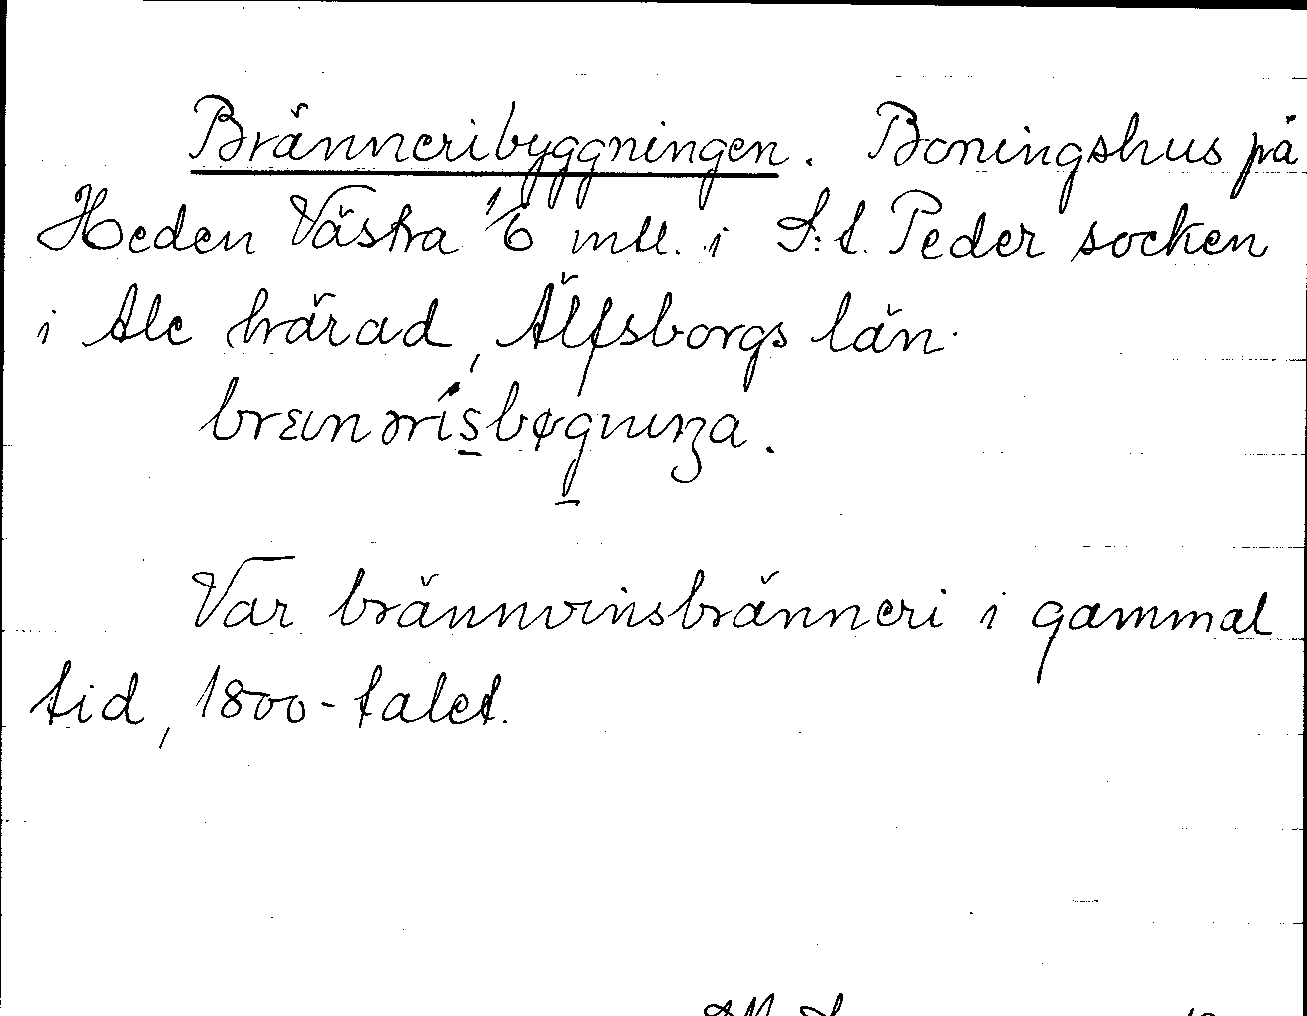 Bränneribyggningen. Boningshus på
Heden Västra 1/6 mtl. i S:t. Peder socken
i Ale härad, Älfsborgs län.
Var brännvinsbränneri i gammal
tid, 1800-talet.